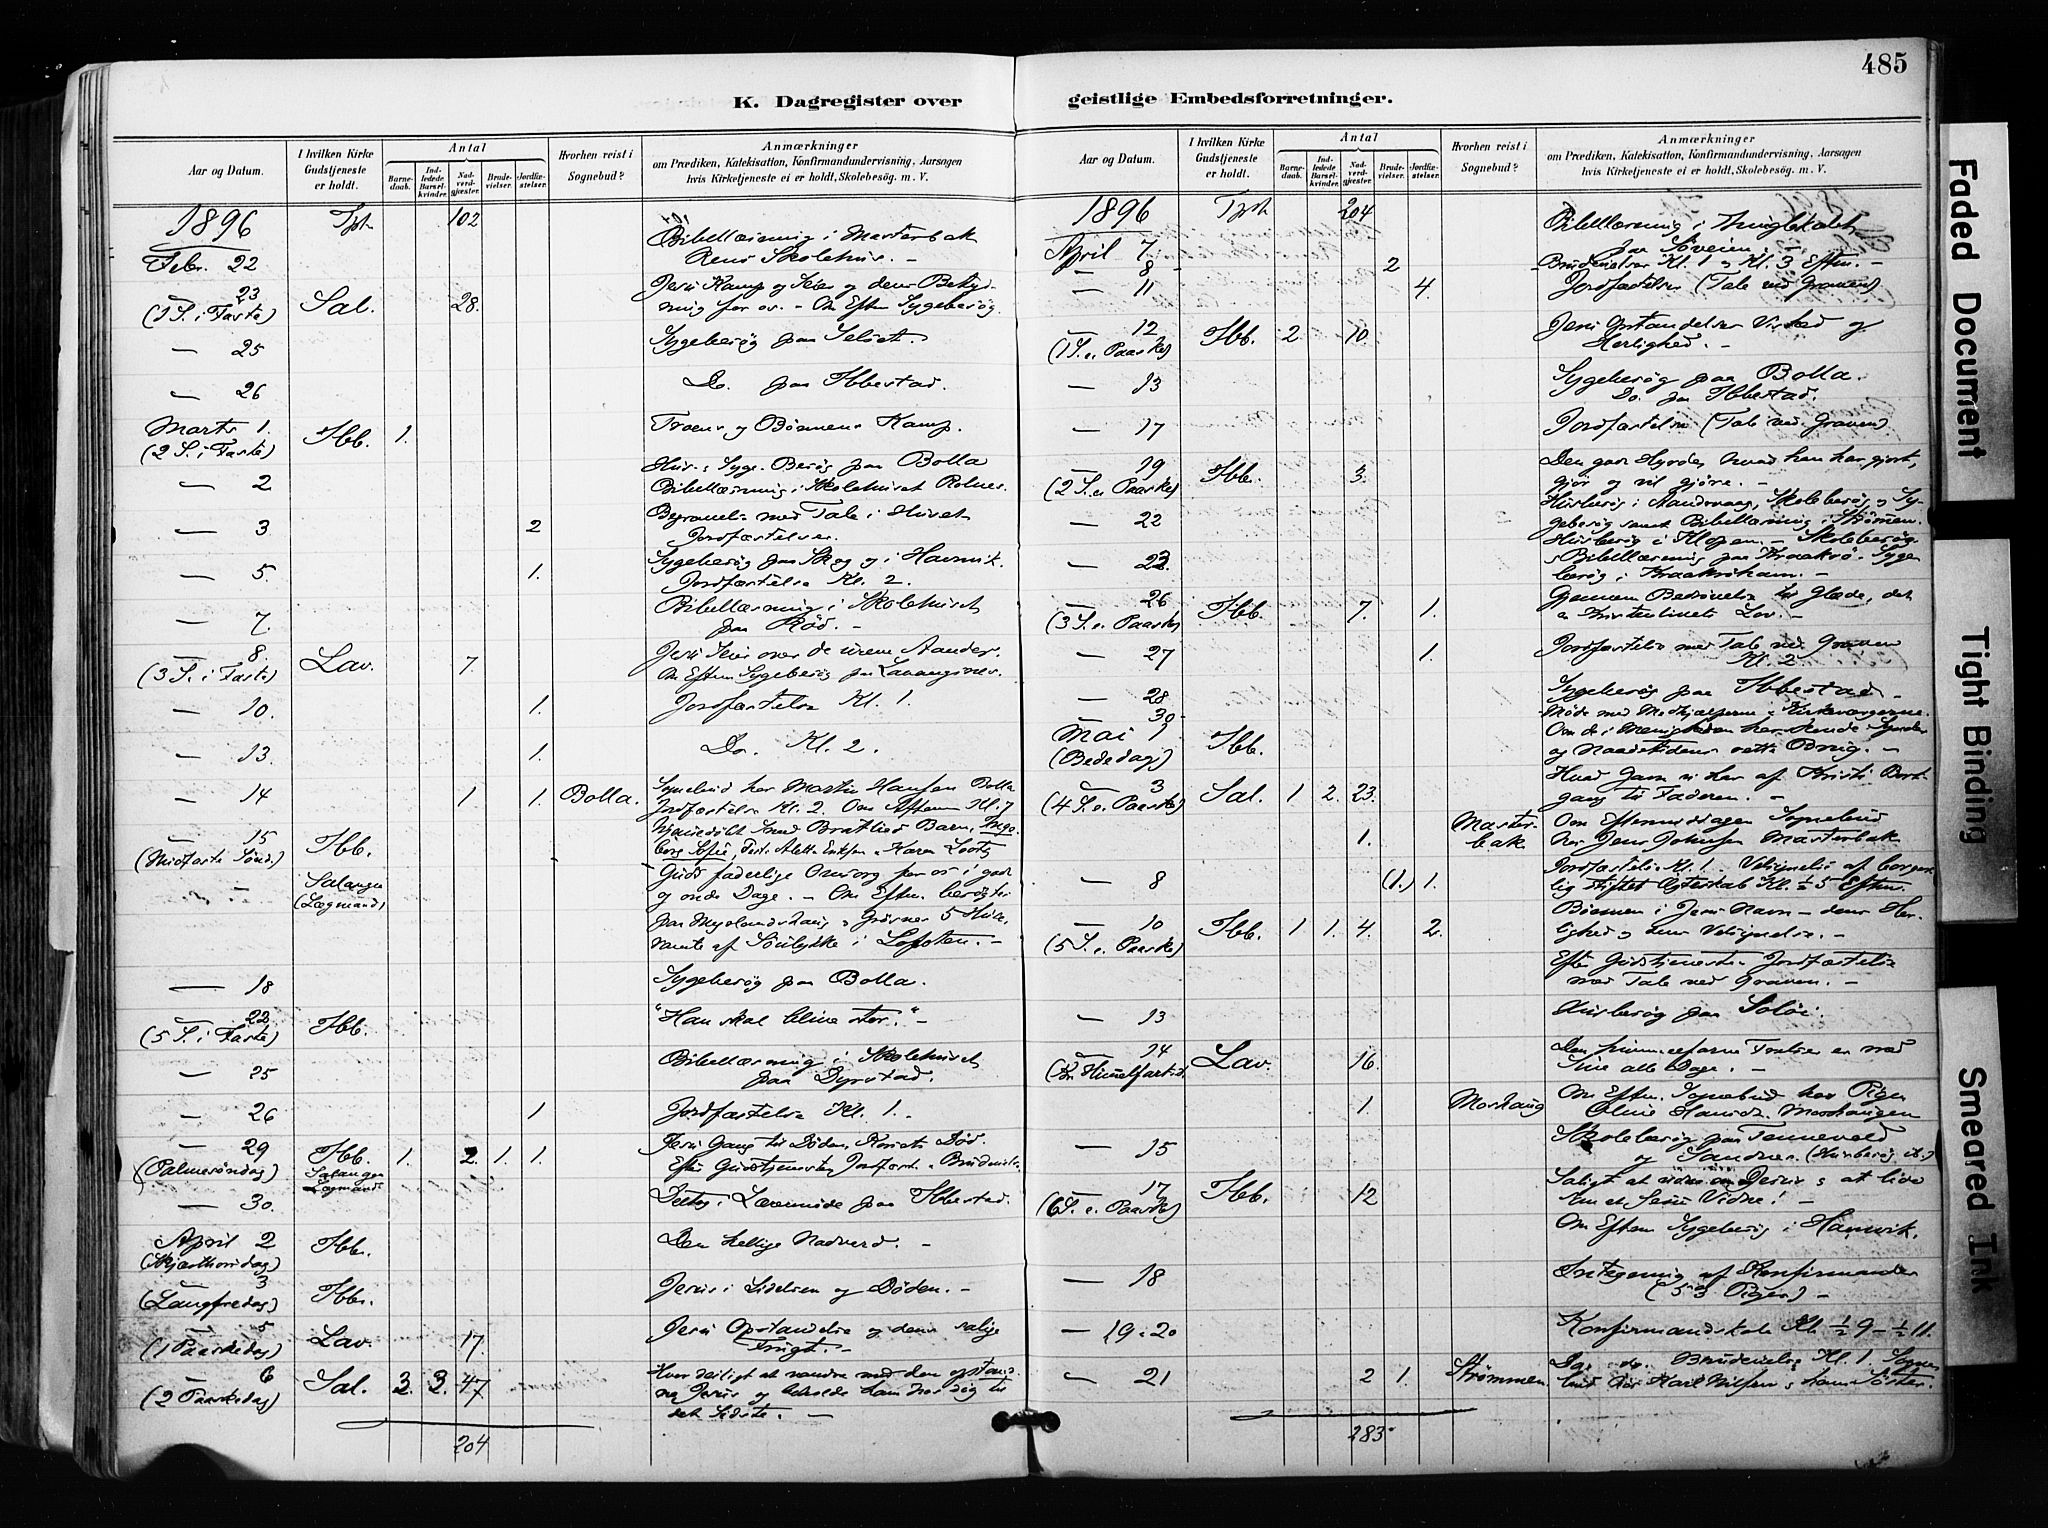 485
K. Dagregister over geistlige Embedsforretninger.
Aar og Datum.
I hvilken Kirke Gudstjeneste er holdt.
Antal
Barnedaab.
Indledede Barselkvinder.
Nadverdgjester.
Brudevielser.
Jordfæstelser.
Hvorhen reist i Sognebud?
Anmærkninger
om Prædiken, Katekisation, Konfirmandundervisning, Aarsagen
hvis Kirketjeneste ei er holdt, Skolebesøg. m. V.
1896 Tpt. 102
Febr. 22 Bibellæsning i Masterbak
Skolehus. —
— 23 Sal. 28. Jesu Kamp og Seier og dens Betyd-
(1 S. i Faste) ning for os. – Om Eftm Sygebesøg.
— 25 Sygebesøg paa Selset.
— 26 Do. paa Ibbestad.
Marts 1. Ibb. 1. Troens og Bønnens Kamp.
(2 S. i Faste)
— 2 Hus- Syge-Besøg paa Bolla
Bibellæsning i Skolehuset Rolnes.
— 3 2 Begravelse med Tale i Huset
Jordfæstelser.
— 5. 1. Sygebesøg paa Skog og i Havnvik.
Jordfæstelse Kl. 2.
— 7. Bibellæsning i Skolehuset
paa Rød. —
— 8. Lav. 7. Jesu Seier over de urene Aander.
(3 S. i Faste) Om Eftm Sygebesøg paa Lavangsnes.
— 10. 1. Jordfæstelse Kl. 1.
— 13. 1. Do. Kl. 2.
— 14 1 1. Bolla. Sognebud hos Martin Hansen Bolla
Jordfæstelse Kl. 2. Om Aftenen Kl. 7
— 15 Ibb. hjemmedøbt Knud Bratlies Barn, Inge-
(Midfaste Sønd.) borg Sofie,
— Salangen Guds faderlige Omsorg for os i gode
(Lægmand) og onde Dage. — Om Eftm. besøgtes
paa 5 Huse,
ramte af Søulykke i Lofoten. —
— 18 Sygebesøg paa Bolla.
— 22 Ibb. "Han skal blive stor." —
(5 S. i Faste)
— 25 Bibellæsning i Skolehuset
paa Dyrstad.
— 26 1 Jordfæstelse Kl. 1.
— 29 Ibb. 1. 2. 1. 1. Jesu Gang til Døden, Korsets Død.
(Palmesøndag) Salangen Lægmand Efter Gudstjenesten Jordfæst. Brudevielse
— 30. Lærermøde paa Ibbestad.
April 2 Ibb. Den hellige Nadverd. —
(Skjærthorsdag)
— 3 Ibb. Jesus i Lidelsen og Døden. —
(Langfredag)
— 5 Lav. 17. Jesu Opstandelse og dens salige
(1 Paaskedag) Frugt. —
— 6 Sal. 3. 3. 47 Hvor deiligt at vandre med den opstand-
(2 Paaskedag) ne Jesus og beholde ham hos sig til
det Sidste. —
204
Aar og Datum.
I hvilken Kirke Gudstjeneste er holdt.
Antal
Barnedaab.
Indledede Barselkvinder.
Nadverdgjester.
Brudevielser.
Jordfæstelser.
Hvorhen reist i Sognebud?
Anmærkninger
om Prædiken, Katekisation, Konfirmandundervisning, Aarsagen
hvis Kirketjeneste ei er holdt, Skolebesøg. m. V.
1896 Tpt. 204
April 7 Bibellæsning i Thinglokalet
paa Søveien.
— 8 2 Brudevielser Kl. 1 og Kl. 3 Eftm. —
— 11 4. Jordfæstelser (Tale ved Graven)
— 12 Ibb. 2. 10. Jesu Opstandelses Visshed og
(1 S. e. Paaske) Herlighed. —
— 13 Sygebesøg paa Bolla.
Do. paa Ibbestad.
— 17 Jordfæstelse (Tale ved Graven)
— 19 Ibb. 3. Den gode Hyrde, hvad han har gjort,
(2 S. e. Paaske) gjør og vil gjøre. —
— 22 Husbesøg i Aandervaag, Skolebesøg og Sy-
gebesøg samt Bibellæsning i Strømmen.
— 23. Husbesøg i Klopen. — Skolebesøg
Bibellæsning paa Kraakrø. Syge-
besøg i Kraakrøhavn. —
— 26 Ibb. 7. 1. Gjennem Bedrøvelse til Glæde, det
(3 S. e. Paaske) er Kristenlivets Lov. —
— 27 1. Jordfæstelse med Tale ved Graven
Kl. 2
— 28 Sygebesøg paa Ibbestad —
— 30. Møde med Medhjælperne Kirkeværgerne.
Mai 1 Ibb. Om de i Menigheden herskende Synder
(Bededag) og Naadetidens rette Brug. —
— 3 Sal. 1 2. 23. Hvad Gavn vi har af Kristi Bort-
(4 S. e. Paaske) gang til Faderen. —
1. Masterbak Om Eftermiddagen Sognebud
hos Jens Johnsen Masterbak
— 8 (1.) 1. Jordfæstelse Kl. 1. Velsignelse af borger-
lig stiftet Ægteskab Kl. ½ 5 Eftm.
— 10 Ibb. 1 1. 4. 2. Bønnen i Jesu Navn – dens Her-
(5 S. e. Paaske) lighed og dens Velsignelse. —
Efter Gudstjenesten Jordfæstelse
med Tale ved Graven. —
— 13 Husbesøg paa Soløi.
— 14 Lav. 16. Den himmelfarne Frelser er med
(Kr. Himmelfartsd.) Sine alle Dage. —
1. Moshaug Om Eftm. Sognebud hos Pigen
Oline Hansd. Moshaugen
— 15 Skolebesøg paa Tennevold
og Sandnes. (Husbesøg)
— 17 Ibb. 12 Saligt at vidne om Jesus og at lide
(6 S. e. Paaske) som et Jesu Vidne! —
Om Eftm Sygebesøg i Hamvik.
— 18 Indtegning af Konfirmander
(53 Piger) —
— 19 & 20 Konfirmandskole Kl. ½ 9 – ½ 11.
— 21 2 1. Strømmen. Do. do. Brudevielse Kl. 1. Sogne-
bud hos Karl Nilsen & hans Søster.
283
Faded Document
Tight Binding
Smeared Ink